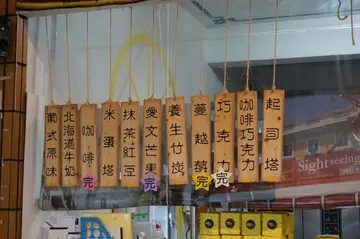 葡式原味
北海道牛奶
咖啡
完
米蛋塔
抹茶紅豆
愛文芒果
完
養生竹炭
蔓越莓
完
巧克力
完
咖啡巧克力
起司塔
Sightseeing